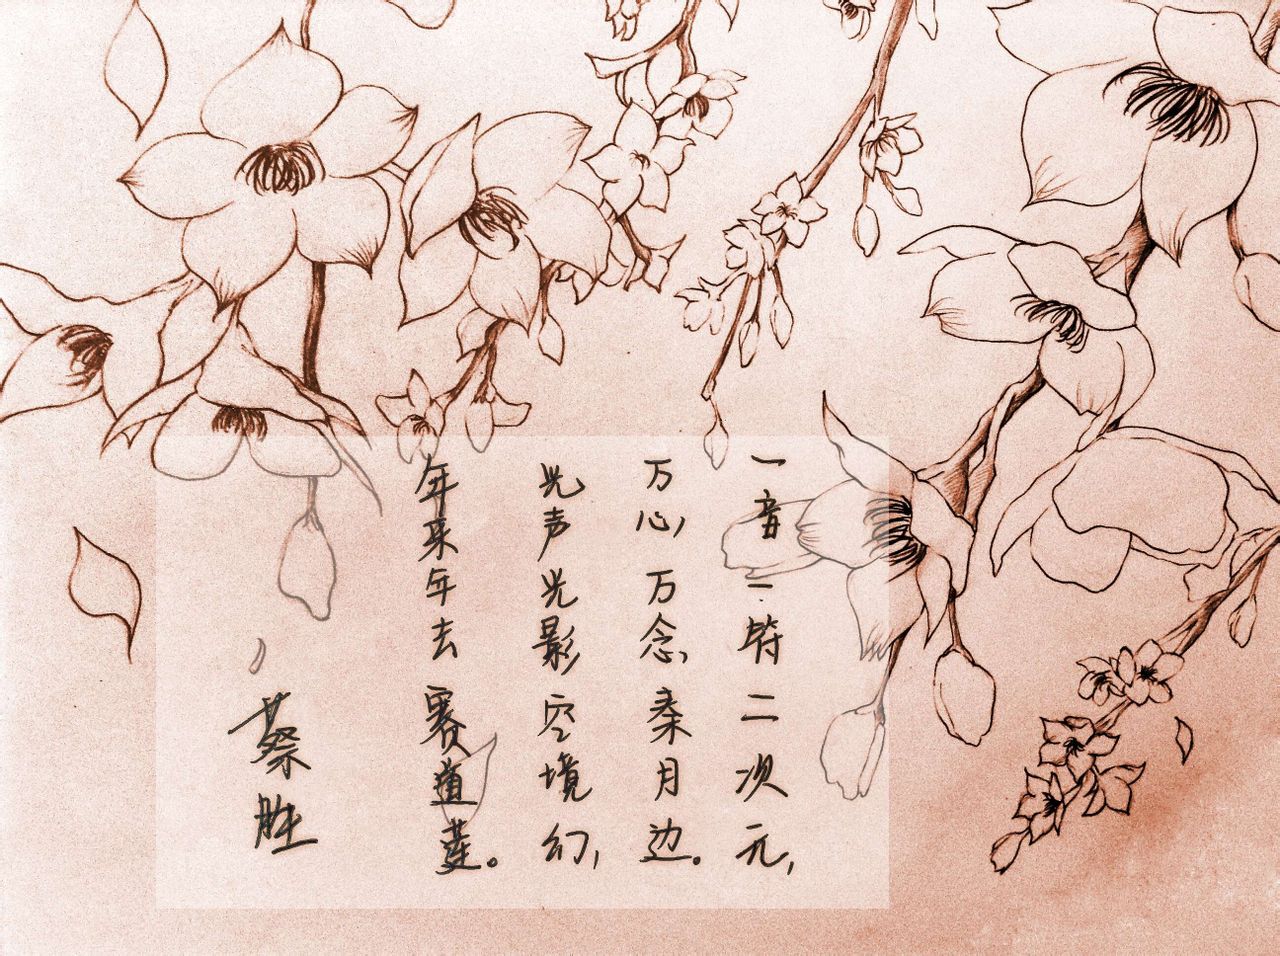 一音一符二次元，
万心万念秦月边。
光声光影空境幻，
年来年去赛道莲。
蔡胜